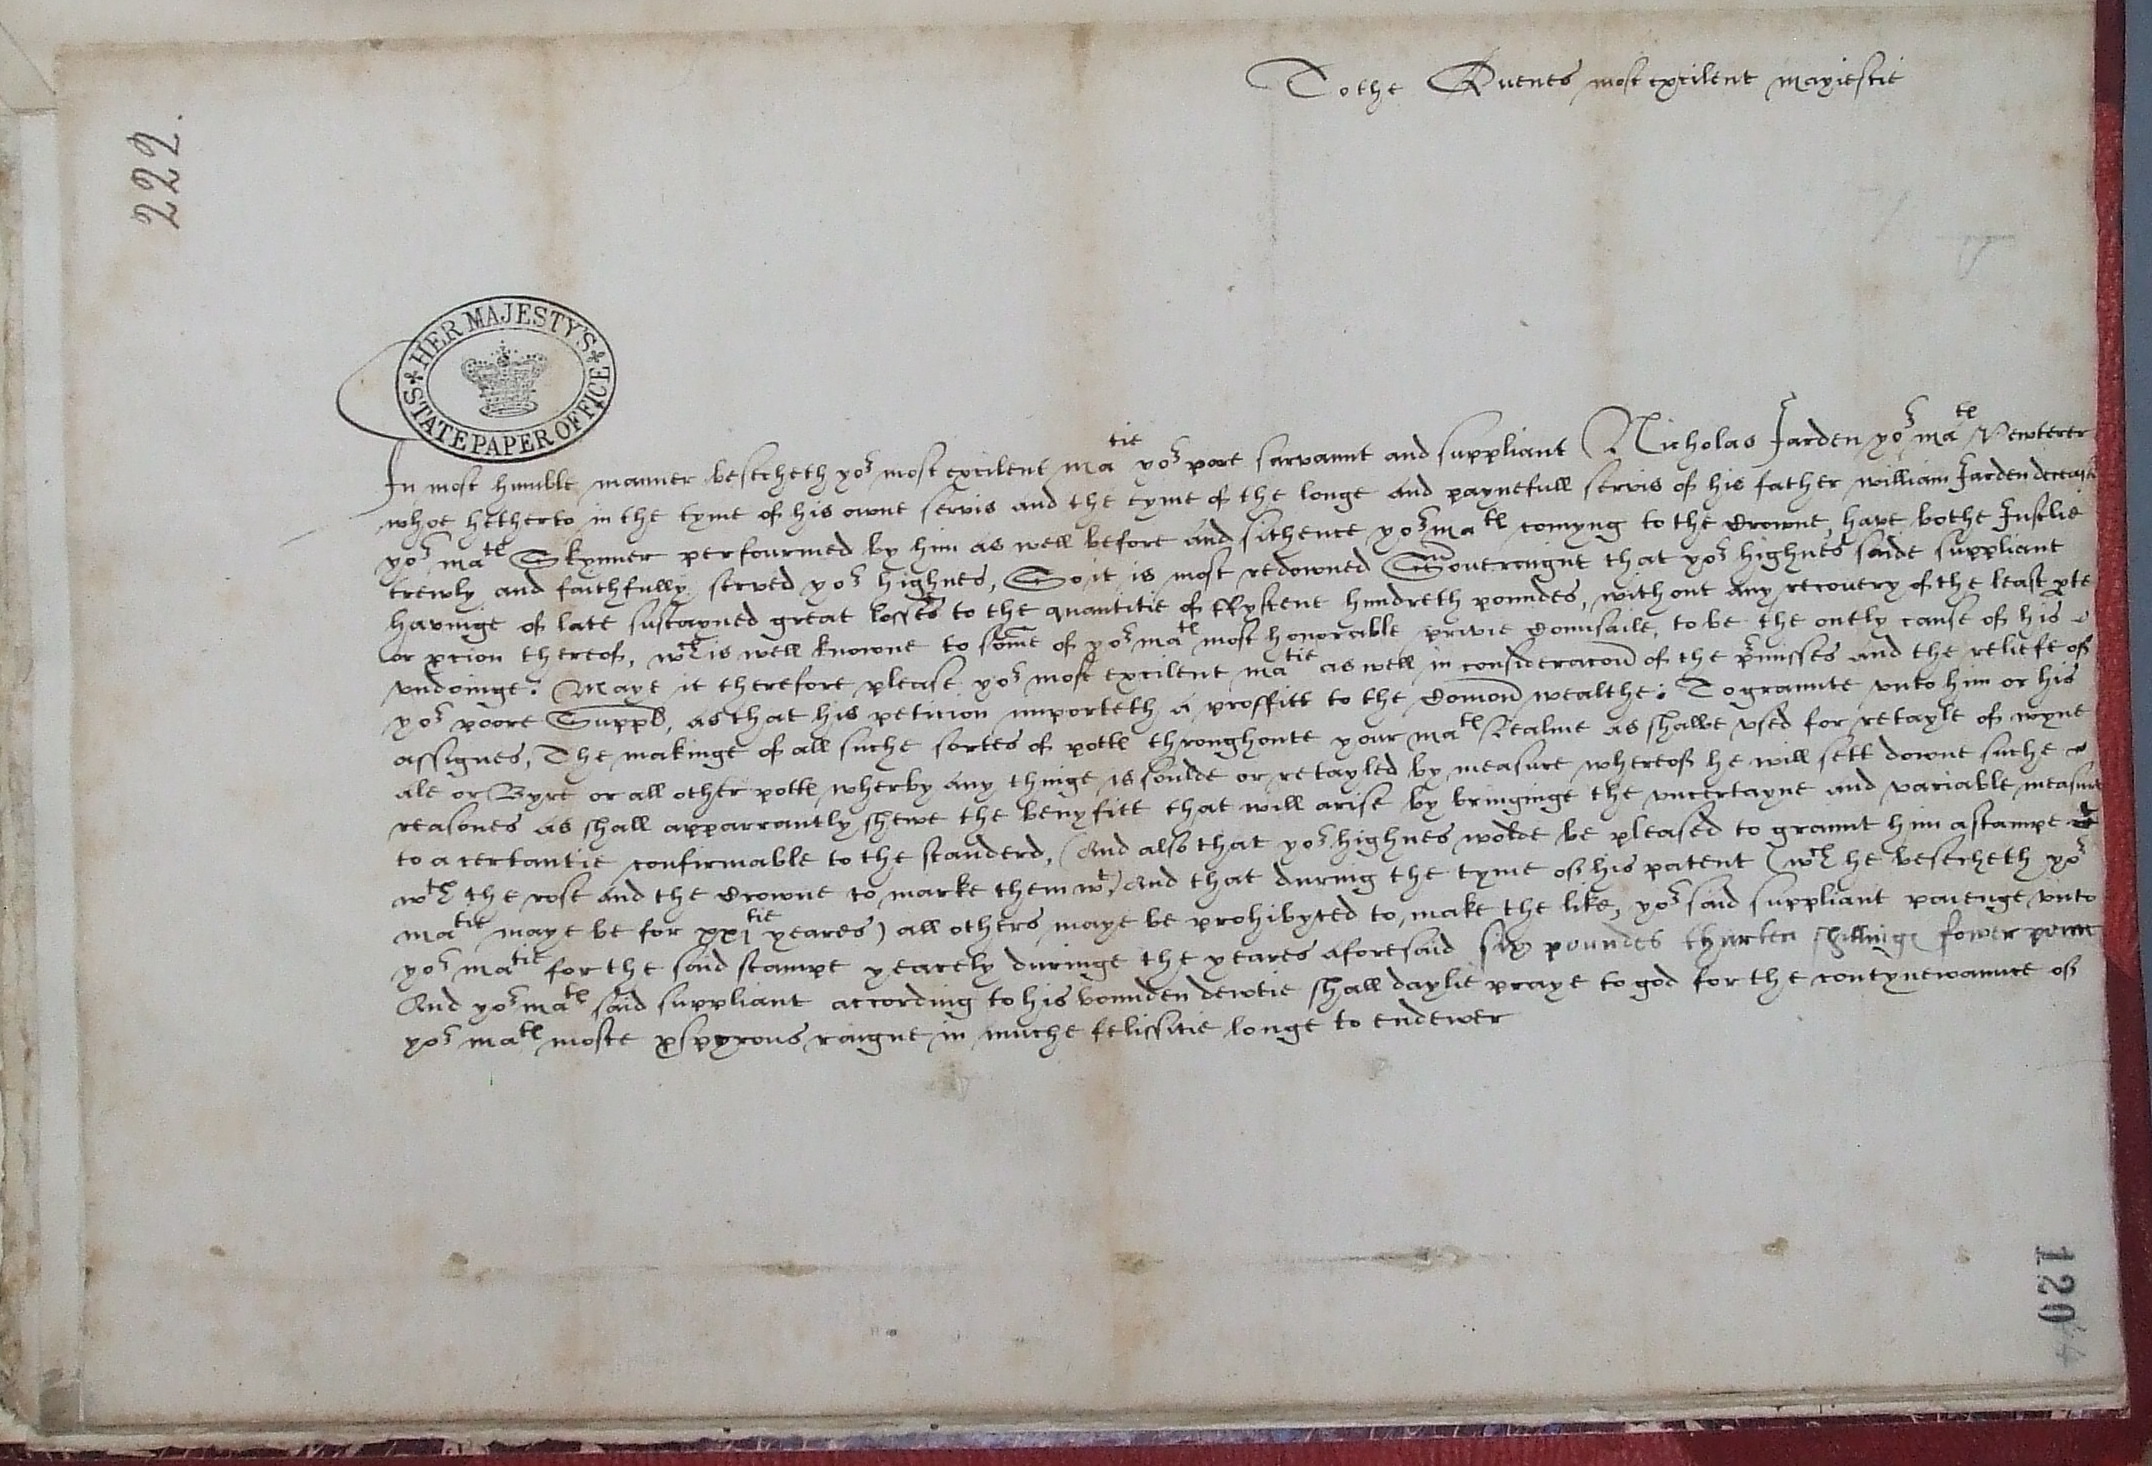 222.
To the Quenes most excilent mayiestie
HER MAJESTY'S STATE PAPER OFFICE
In most humble manner besecheth yor most excilent matie yor pore sarvannt and suppliant Nicholas Jarden yor mates Pewterer
whoe hetherto in the tyme of his owne servis and the tyme of the longe and paynefull servis of his father william Jarden deceast
yor mates Skynner perfourmed by him as well before and sithence yor mates comyng to the Crowne, have bothe Justlie
trewly and faithfully served yor highnes, So it is most redowned Soveraigne that yor highnes saide suppliant
havinge of late sustayned great losses to the quantitie of ffyftene hundreth poundes, without any recovery of the least pte
or pcion thereof, wch is well knowne to some of yor mates most honorable privie Counsaile, to be the onely cause of his
undoinge. Maye it therefore please yor most excilent matie as well in consideracon of the pmisses and the reliefe of
yor poore Suppl, as that his peticion importeth a proffitt to the Comon wealthe: To graunte unto him or his
assignes, The makinge of all suche sortes of pottes throughoute your mates Realme as shalbe used for retayle of wyne
ale or Byre or all other pottes wherby any thinge is soulde or retayled by measure whereof he will sett downe suche
reasones as shall apparrantly shewe the benyfitt that will arise by bringinge the uncertayne and variable measures
to a certantie confirmable to the standerd, (And also that yor highnes wolde be pleased to graunt him a stampe
wth the rose and the Crowne to marke them wt) And that during the tyme of his patent (wch he besecheth yor
matie maye be for xxitie yeares) all others maye be prohibyted to make the like, yor said suppliant paienge unto
yor matie for the said stampe yearely duringe the yeares aforesaid six poundes thirten shillinges fower penc
And yor mates said suppliant according to his bounden dewtie shall daylie praye to god for the contynewannce of
yor mates moste psperous raigne in muche felissitie longe to endewer
120